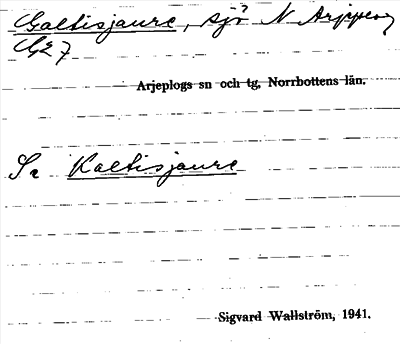 Galtisjaure, sjö N Arjeplog
GE7
Arjeplogs sn och tg, Norrbottens län.
Se Kaltisjaure
Sigvard Wallström, 1941.